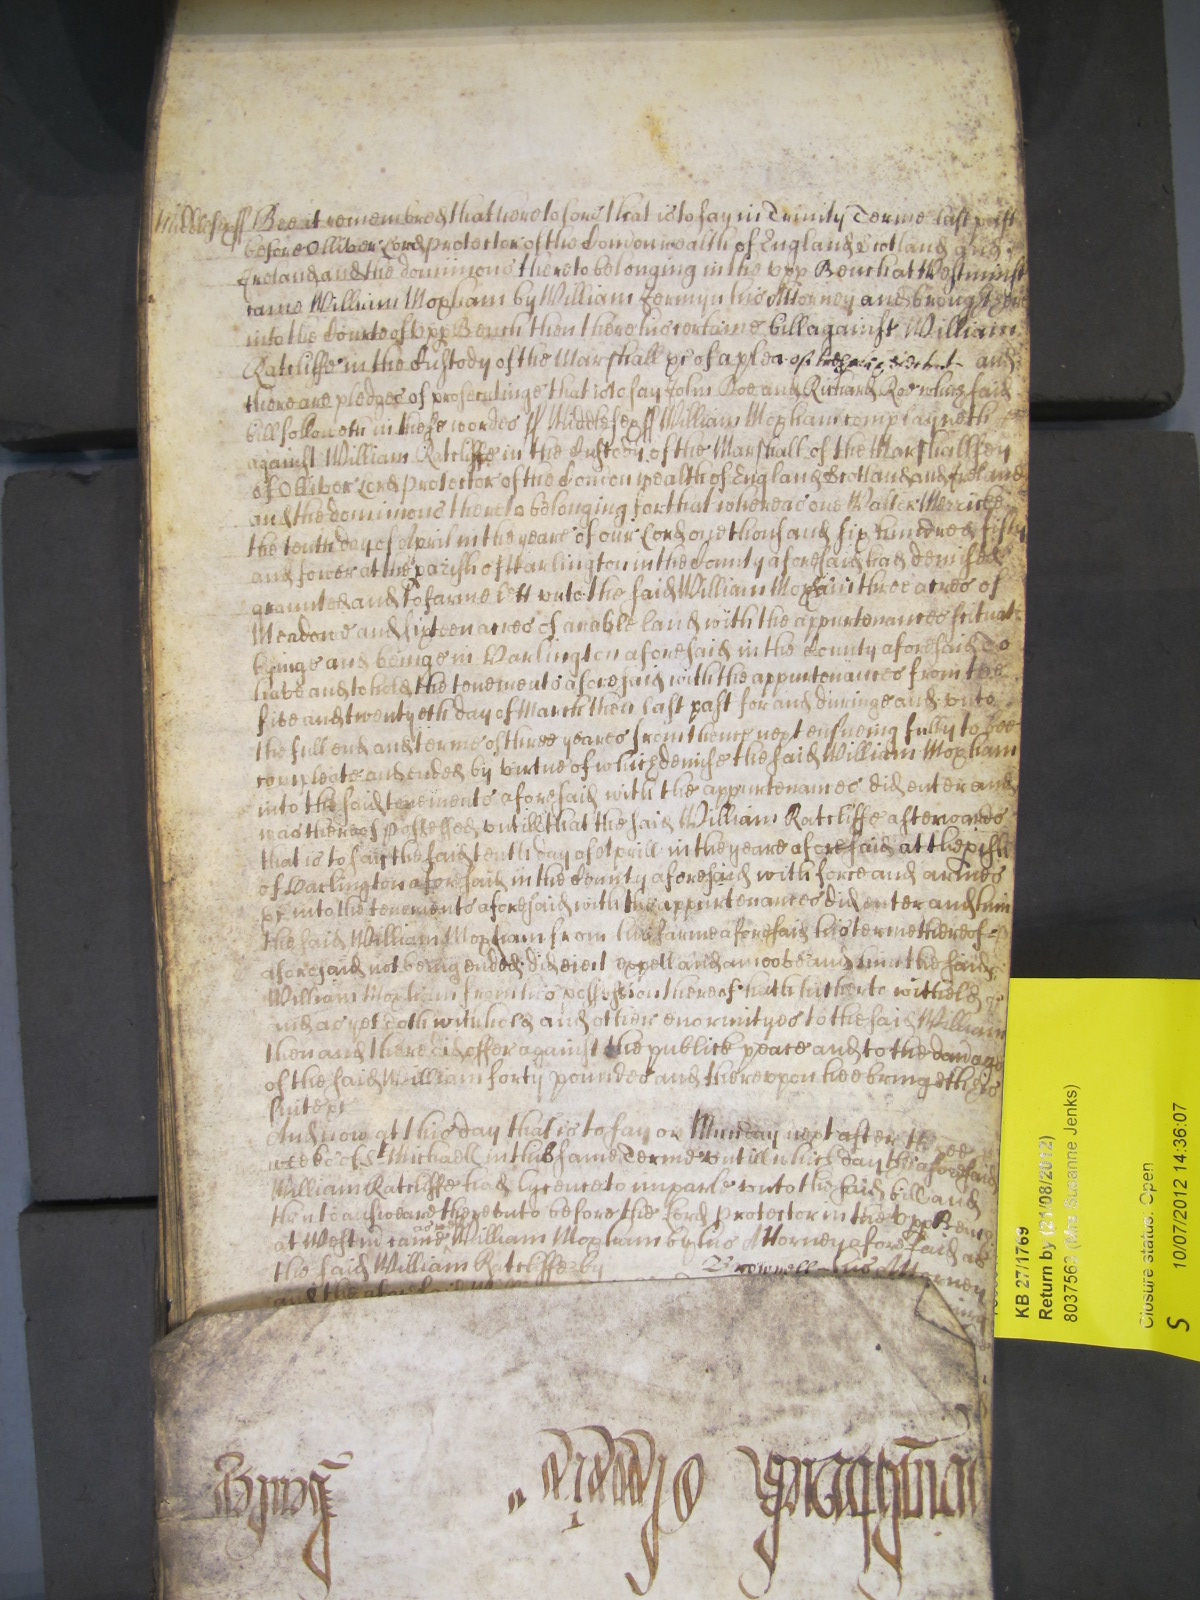 Middlesexss Bee it remembred that heretofore that is to say in Trinity Terme last past
before Olliver Lord Protector of the Comonwealth of England Scotland and
Ireland and the dominions thereto belonging in the vpp Bench at Westminst
came William Mopham by William Jermyn his Attorney and brought here
into the Courte of vpp Bench then there his certaine bill against William
Ratcliffe in the Custody of the Marshall &c of a plea of and
there are pledges of prosecutinge that is to say John Doe and Richard Roe which said
bill followeth in these wordes ss Middlesexss William Mopham complayneth
against William Ratcliffe in the Custody of the Marshall of the Marshallsey
of Olliver Lord Protector of the Comonwealth of England Scotland and Ireland
and the dominions thereto belonging for that whereas one Walter Merricke
the tenth day of Aprill in the yeare of our Lord one thousand six hundred fifty
and fower at the parish of Harlington in the County aforesaid had demised
graunted and to farme lett vnto the said William Mopham three acres of
Meadowe and sixteen acres of arable land with the appurtenances scituate
lyinge and beinge in Harlington aforesaid in the County aforesaid To
have and to hold the tenements aforesaid with the appurtenances from the
five and twentyeth day of March then last past for and duringe and vnto
the full end and terme of three yeares from thence next ensueing fully to bee
compleate and ended by virtue of which demise the said William Mopham
into the said tenements aforesaid with the appurtenances did enter and
was thereof possessed vntill that the said William Ratcliffe afterwards
that is to say the said tenth day of Aprill in the yeare aforesaid at the pish
of Harlington aforesaid in the County aforesaid with force and armes
&c into the tenements aforesaid with the appurtenances did enter and him
the said William Mopham from his farme aforesaid his terme thereof
aforesaid not being ended did eject expell and amove and him the said
William Mopham from his possession thereof hath hitherto witheld
and as yet doth withold and other enormityes to the said William
then and there did offer against the publick peace and to the damage
of the said William forty poundes and therevpon hee bringeth his
suite &c
And now at this day that is to say on Munday next after three
weekes of St Michaell in this same Terme vntill which day the aforesaid
William Ratcliffe had lycence to imparle vnto the said bill and
then to answeare therevnto before the Lord Protector in the vpp Bench
at Westm came as well William Mopham by his Attorney aforesaid as
the said William Ratcliffe by Brownell his Attorney
KB 27/1769
Return by (21/08/2012)
8037563 (Mrs Susanne Jenks)
Closure status: Open
10/07/2012 14:36:07
S